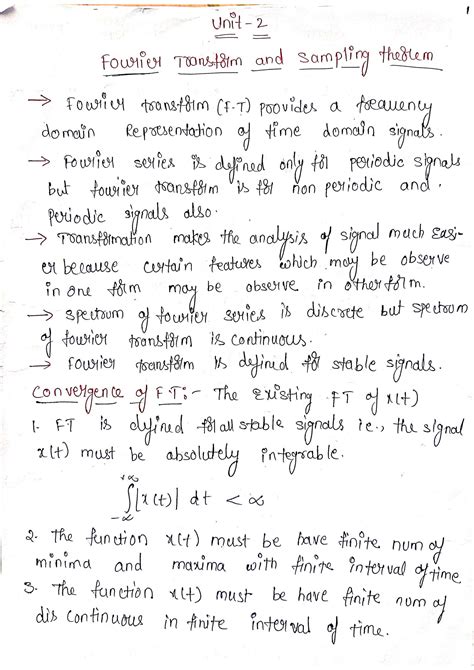 1
Unit-2
Fourier Transform and Sampling theorem
→ Fourier transform (F.T) provides a frequency
domain Representation of time domain signals.
→ Fourier series is defined only for periodic signals
but fourier transform is for non periodic and
periodic signals also.
→ Transformation makes the analysis of signal much Easi-
er because certain features which may be observe
in one form may be observe in other form.
→ spectrum of fourier series is discrete but spectrum
of fourier transform is continuous.
→ Fourier transform is defined for stable signals.
Convergence of F.T:- The Existing FT of x(t)
1. FT is defined for all stable signals i.e., the signal
x(t) must be absolutely integrable.
+∞
∫|x(t)| dt < ∞
-∞
2. The function x(t) must be have finite num of
minima and maxima with finite interval of time
3. The function x(t) must be have finite num of
dis continuous in finite interval of time.